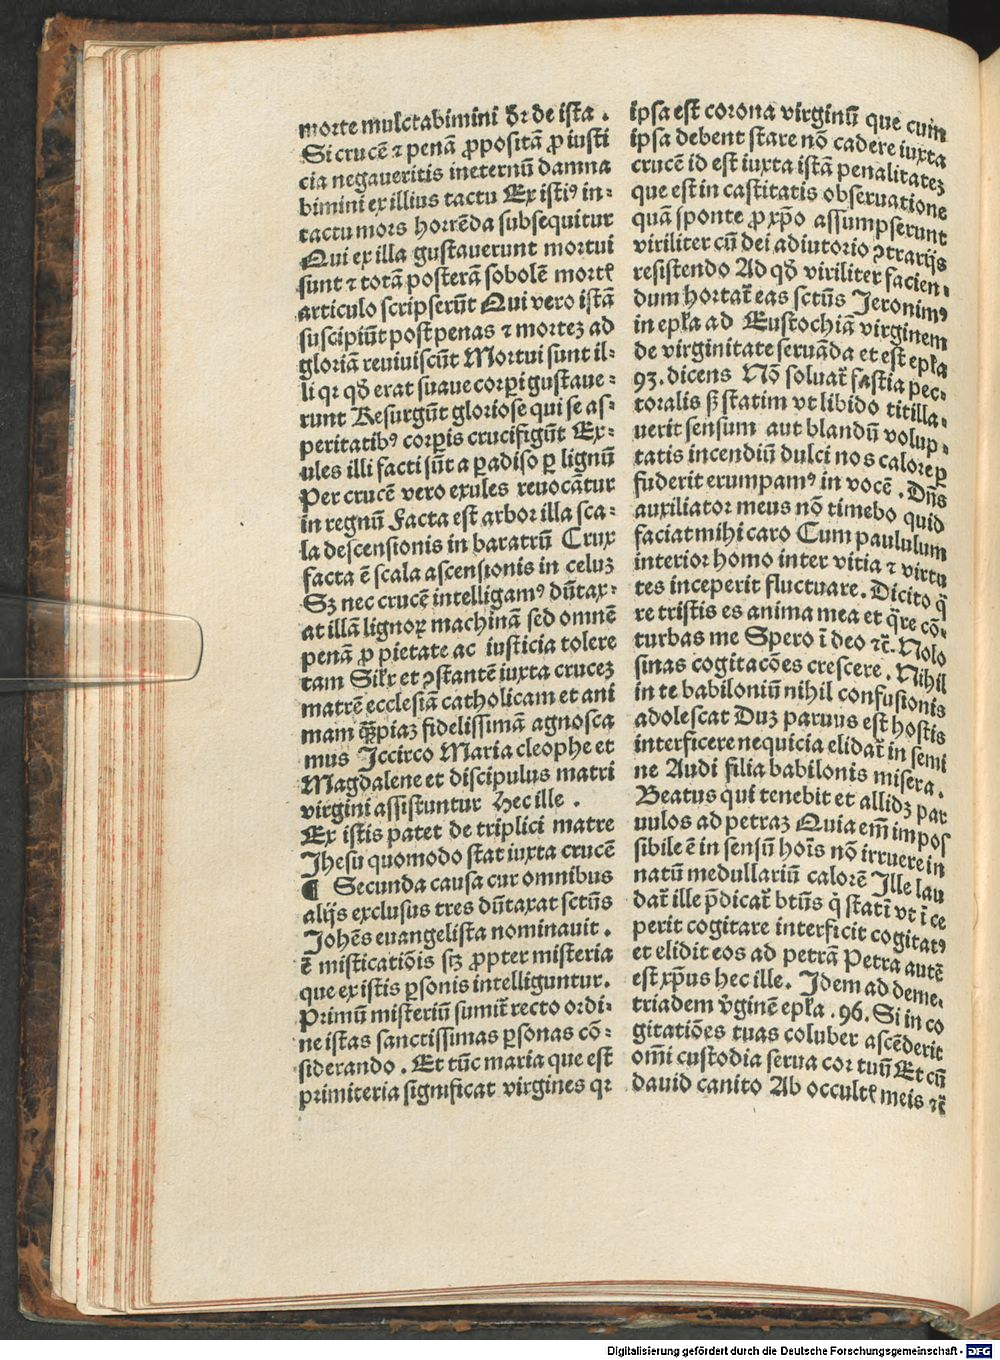 morte mulctabimini dr̄ de ista .
Si crucē ⁊ penā ꝓpositā ꝓ iusti
cia negaueritis ineternū damna
bimini ex illius tactu Ex istiꝰ in-
tactu mors horrēda subsequitur
Qui ex illa gustauerunt mortui
sunt ⁊ totā posterā sobolē mortꝭ
articulo scripserūt Qui vero istā
suscipiūt post penas ⁊ mortez ad
gloriā reuiuiscūt Mortui sunt il-
li qꝛ qd̄ erat suaue corꝑi gustaue-
runt Resurgūt gloriose qui se as-
peritatibꝰ corꝑis crucifigūt Ex-
ules illi facti sūt a ꝑadiso ꝑ lignū
Per crucē vero exules reuocātur
in regnū Facta est arbor illa sca-
la descensionis in baratrū Crux
facta ē scala ascensionis in celuz
Sz nec crucē intelligamꝰ dūtax-
at illā lignoꝝ machinā sed omnē
penā ꝓ pietate ac iusticia tolere
tam Silr̄ et ꝯstantē iuxta crucez
matrē ecclesiā catholicam et ani
mam piaz fidelissimā agnosca
mus Iccirco Maria cleophe et
Magdalene et discipulus matri
virgini assistuntur Hec ille .
Ex istis patet de triplici matre
Jhesu quomodo stat iuxta crucē
¶ Secunda causa cur omnibus
alijs exclusus tres dūtaxat sctūs
Johēs euangelista nominauit .
ē misticatiōis sꝫ ꝓpter misteria
que ex istis ꝑsonis intelliguntur.
Primū misteriū sumit̄ recto ordi-
ne istas sanctissimas ꝑsonas cō-
siderando . Et tūc maria que est
primiteria significat virgines qꝛ
ipsa est corona virginū que cum
ipsa debent stare nō cadere iuxta
crucē id est iuxta istā penalitatez
que est in castitatis obseruatione
quā sponte ꝓ xp̄o assumpserunt
viriliter cū dei adiutorio ꝯtrarijs
resistendo Ad qd̄ viriliter facien-
dum hortat̄ eas sctūs Jeronimꝰ
in ep̄la ad Eustochiā virginem
de virginitate seruāda et est ep̄la
93. dicens Nō soluat̄ fastia pec-
toralis sꝫ statim vt libido titilla-
uerit sensum aut blandū volup-
tatis incendiū dulci nos calore ꝑ
fuderit erumpamꝰ in vocē . Dn̄s
auxiliator meus nō timebo quid
faciat mihi caro Cum paululum
interior homo inter vitia ⁊ virtu
tes inceperit fluctuare . Dicito q̄
re tristis es anima mea et q̄re cō-
turbas me Spero ī deo ⁊c̄. Nolo
sinas cogitacōes crescere . Nihil
in te babiloniū nihil confusionis
adolescat Duz paruus est hostis
interficere nequicia elidat̄ in semi
ne Audi filia babilonis misera .
Beatus qui tenebit et allidꝫ par
uulos ad petraz Quia em̄ impos
sibile ē in sensū hoīs nō irruere in
natū medullariū calorē Ille lau
dat̄ ille p̄dicat̄ btūs q̇ statī vt ī ce
perit cogitare interficit cogitatꝰ
et elidit eos ad petrā Petra autē
est xp̄us hec ille . Idem ad deme-
triadem v̄ginē ep̄la . 96. Si in co
gitatiōes tuas coluber ascēderit
om̄i custodia serua cor tuū Et cū
dauid canito Ab occultꝭ meis ⁊c̄
Digitalisierung gefördert durch die Deutsche Forschungsgemeinschaft - DFG